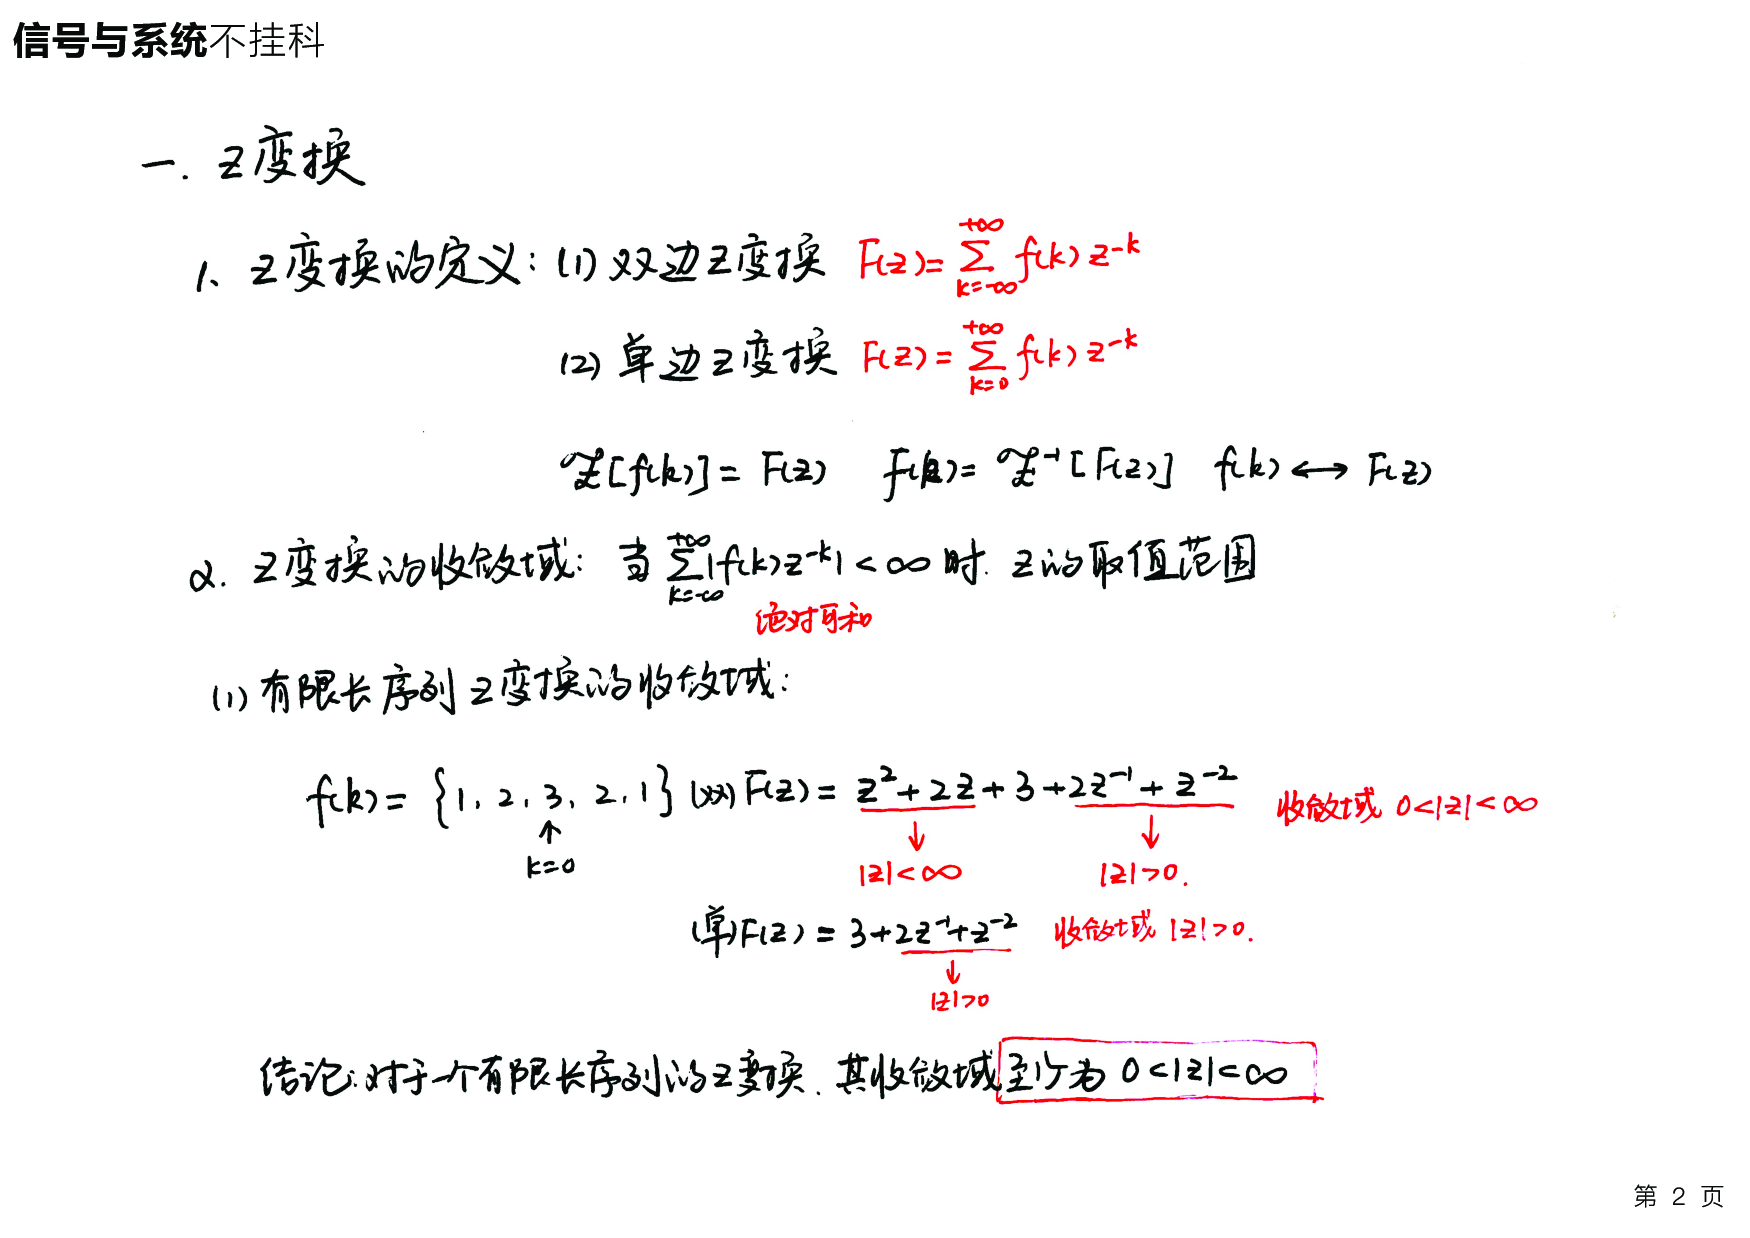 信号与系统不挂科
一. Z变换
1、Z变换的定义: (1) 双边Z变换 F(z)=∑_{k=-∞}^{+∞} f(k) z^{-k}
(2) 单边Z变换 F(z)=∑_{k=0}^{+∞} f(k) z^{-k}
𝒵[f(k)] = F(z) f(k)= 𝒵^{-1}[F(z)] f(k) ↔ F(z)
2. Z变换的收敛域: 当 ∑_{k=-∞}^{+∞} |f(k)z^{-k}| < ∞ 时. Z的取值范围
绝对可和
(1) 有限长序列Z变换的收敛域:
f(k) = {1, 2, 3, 2, 1} (双) F(z) = z²+2z+3+2z^{-1}+z^{-2} 收敛域 0<|z|<∞
↑ ↓ ↓
k=0 |z|<∞ |z|>0.
(单)F(z) = 3+2z^{-1}+z^{-2} 收敛域 |z|>0.
↓
|z|>0
结论: 对于一个有限长序列的Z变换. 其收敛域至少为 0<|z|<∞
第 2 页